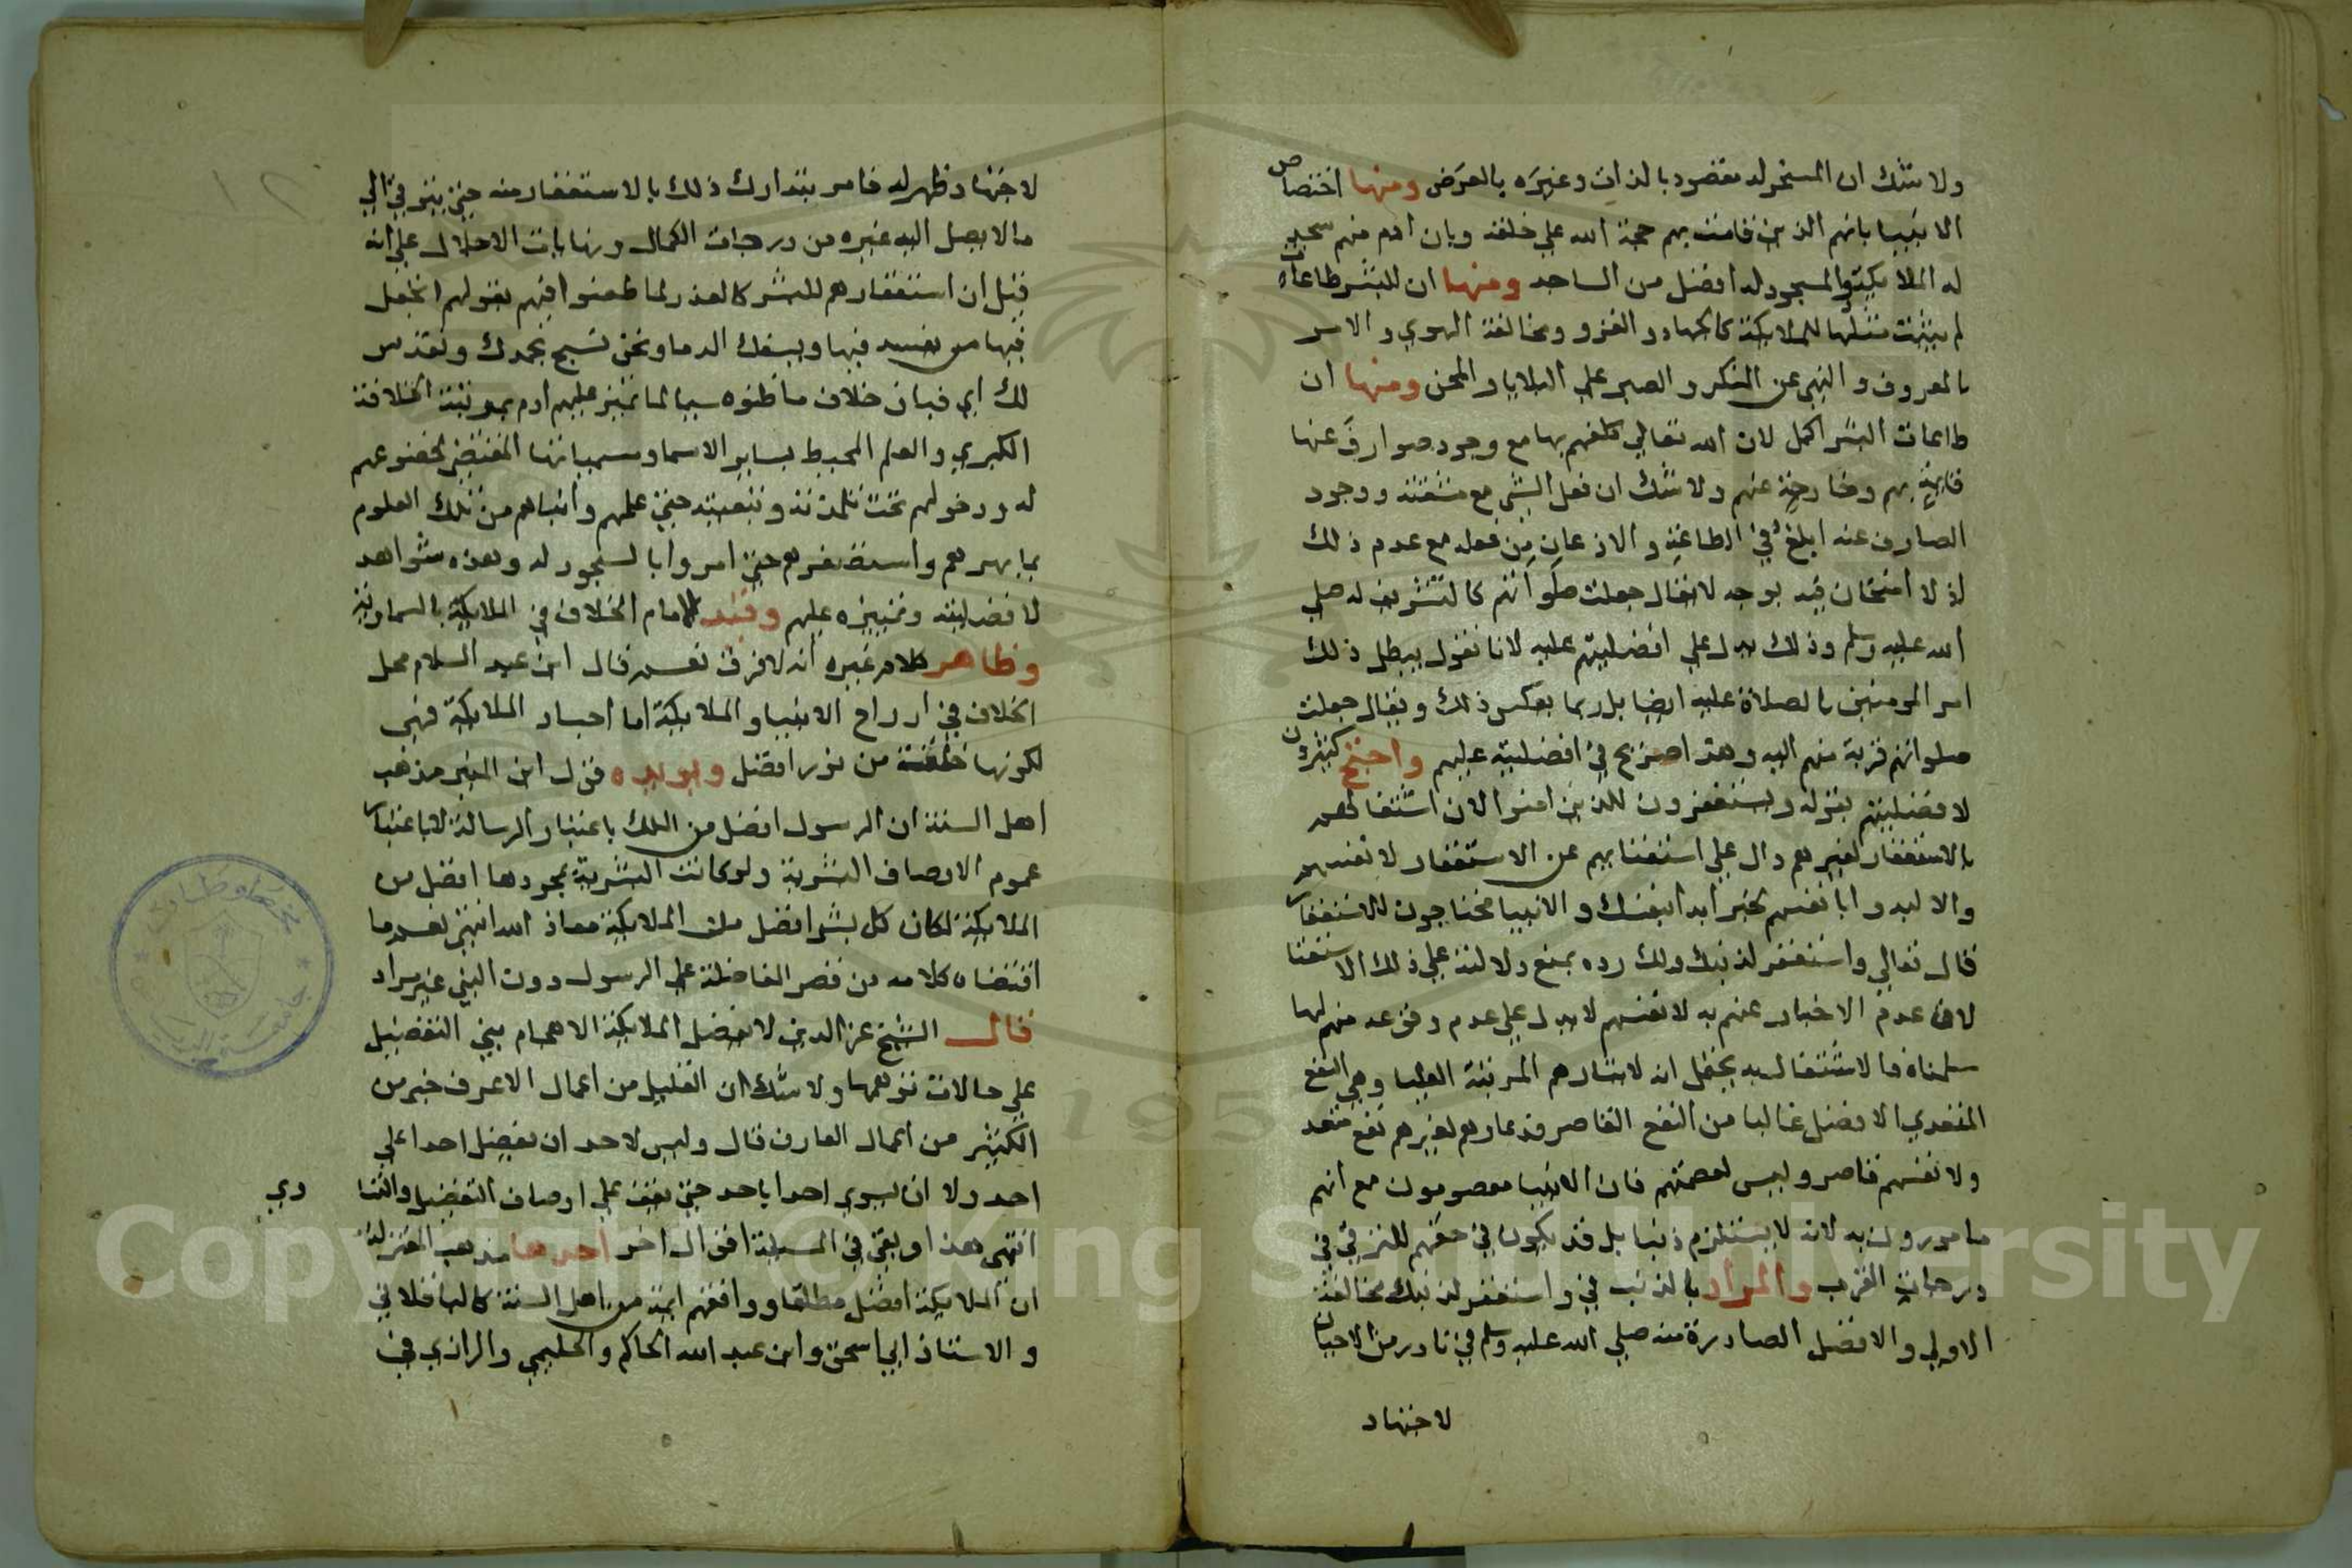 ولا شك ان المسخر له مقصود بالذات وغيره بالعرض ومنها اختصاص
الانبيا بانهم الذين قامت بهم حجة الله علي خلقه وبان ادم منهم سجدت
له الملايكة والمسجود له افضل من الساجد ومنها ان للبشر طاعات
لم يثبت مثلها للملايكة كالجهاد والغزو ومخالفة الهوي والامر
بالمعروف والنهي عن المنكر والصبر علي البلايا والمحن ومنها ان
طاعات البشر اكمل لان الله تعالي كلفهم بها مع وجود صوارف عنها
قايمة بهم وخارجة عنهم ولا شك ان فعل الشي مع مشقته ووجود
الصارف عنه ابلغ في الطاعة والاذعان من فعله مع عدم ذلك
اذ لا امتحان فيه بوجه لا يقال جعلت صلواتهم كالتشريف له صلي
الله عليه وسلم وذلك يدل علي افضليتهم عليه لانا نقول يبطل ذلك
امر المومنين بالصلاة عليه ايضا بل ربما يعكس ذلك ويقال جعلت
صلواتهم قربة منهم اليه وهذا صريح في افضليته عليهم واحتج كثيرون
لافضليتهم بقوله ويستغفرون للذين امنوا لان اشتغالهم
بالاستغفار لغيرهم دال علي استغنايهم عن الاستغفار لانفسهم
والا لبدوا بانفسهم لخبر ابدا بنفسك والانبيا محتاجون للاستغفار
قال تعالي واستغفر لذنبك ولك رده بمنع دلالته علي ذلك الاستغنا
لان عدم الاخبار عنهم به لانفسهم لا يدل علي عدم وقوعه منهم لها
سلمناه فالاشتغال به يحتمل انه لايثارهم المرتبة العليا وهي النفع
المتعدي الافضل غالبا من النفع القاصر فدعاوهم لغيرهم نفع متعد
ولانفسهم قاصر وليس لعصمتهم فان الانبيا معصومون مع انهم
مامورون به لانه لا يستلزم ذنبا بل قد يكون في حقهم للترقي في
درجات القرب والمراد بالذنب في واستغفر لذنبك مخالفة
الاولي والافضل الصادرة منه صلي الله عليه وسلم في نادر من الاحيان
لاجتهاد
لاجتهاد ظهر له فامر بتدارك ذلك بالاستغفار منه حتي يترقي الي
ما لا يصل اليه غيره من درجات الكمال ونهايات الاجلال علي انه
قيل ان استغفارهم للبشر كالعذر لما طعنوا فيهم بقولهم اتجعل
فيها من يفسد فيها ويسفك الدما ونحن نسبح بحمدك ونقدس
لك اي فبان خلاف ما ظنوه سيما لما تميز عليهم ادم بمرتبة الخلافة
الكبري والعلم المحيط بساير الاسما ومسمياتها المقتضي لخضوعهم
له ودخولهم تحت تلمذته وتبعيته حتي علمهم وانباهم من تلك العلوم
بما بهرهم واستصغرهم حتي امروا بالسجود له وهذه شواهد
لافضليته وتمييزه عليهم وقيد الامام الخلاف في الملايكة بالسماوية
وظاهر كلام غيره انه لا فرق نعم قال ابن عبد السلام محل
الخلاف في ارواح الانبيا والملايكة اما اجساد الملايكة فهي
لكونها خلقت من نور افضل ويويده قول ابن المنير مذهب
اهل السنة ان الرسول افضل من الملك باعتبار الرسالة لا باعتبار
عموم الاوصاف البشرية ولو كانت البشرية بمجردها افضل من
الملايكة لكان كل بشر افضل من الملايكة معاذ الله انتهي نعم ما
اقتضاه كلامه من قصر المفاضلة علي الرسول دون النبي غير مراد
قال الشيخ عز الدين لا يفضل الملايكة الا هجام يبني التفضيل
علي حالات توهمها ولا شك ان القليل من اعمال الاعرف خير من
الكثير من اعمال العارف قال وليس لاحد ان يفضل احدا علي
احد ولا ان يسوي احدا باحد حتي يقف علي اوصاف التفضيل والتسا
وي
انتهي هذا وبقي في المسيلة اقوال اخر احدها مذهب المعتزلة
ان الملايكة افضل مطلقا ووافقهم ايمة من اهل السنة كالباقلاني
والاستاذ ابي اسحق وابن عبد الله الحاكم والحليمي والرازي في
Copyright © King Saud University
195